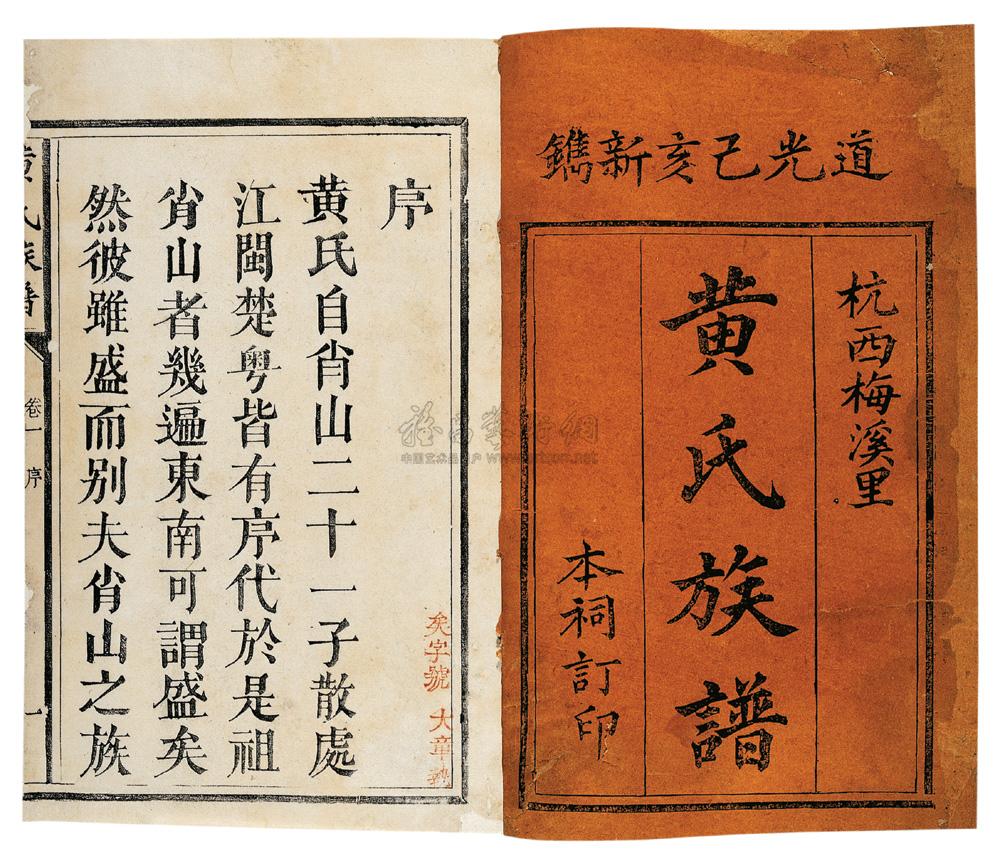 道光己亥新鐫
杭西梅溪里
黄氏族譜
本祠訂印
序
黄氏自峭山二十一子散處
江閩楚粤皆有序代於是祖
峭山者幾遍東南可謂盛矣
然彼雖盛而别夫峭山之族
矣字號 大章執
黄氏族譜
卷一 序
一
中国艺术品 户 www.artxun.net